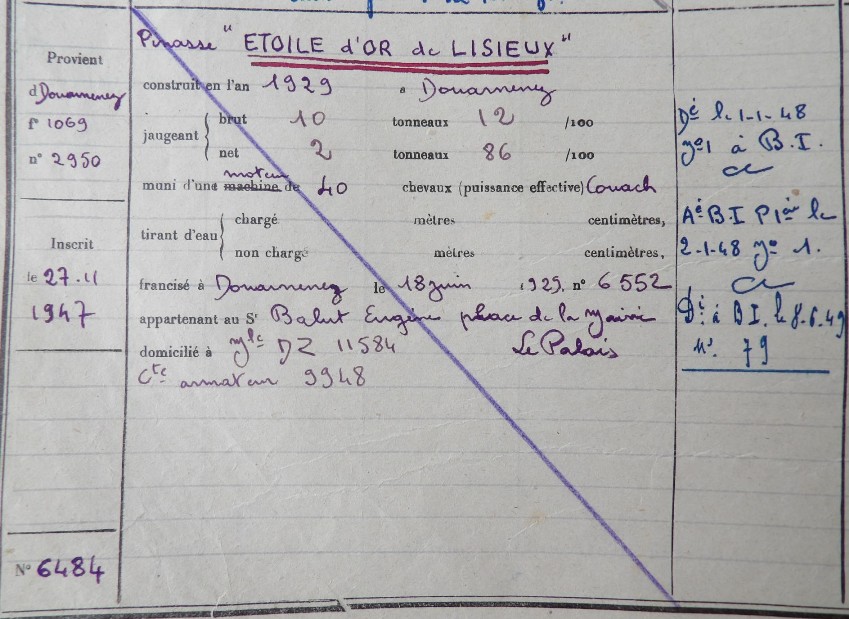 Provient
d Douarnenez
f° 1069
n° 2950
Inscrit
le 27.11
1947
N° 6484
Pinasse "ETOILE d'OR de LISIEUX"
construit en l'an 1929 a Douarnenez
jaugeant
brut 10 tonneaux 12 /100
net 2 tonneaux 86 /100
moteur
muni d'une machine de 40 chevaux (puissance effective) Couach
tirant d'eau
chargé mètres centimètres,
non chargé mètres centimètres,
francisé à Douarnenez le 18 juin 1929, n° 6552
appartenant au Sr Balut Eugène place de la Mairie
domicilié à Mle DZ 11584 Le Palais
Cte armateur 9948
Dé le 1-1-48
n° 1 à B.I.
Aé B.I le
2-1-48 n° 1.
Dé à B I. le 8.6.49
N° 79